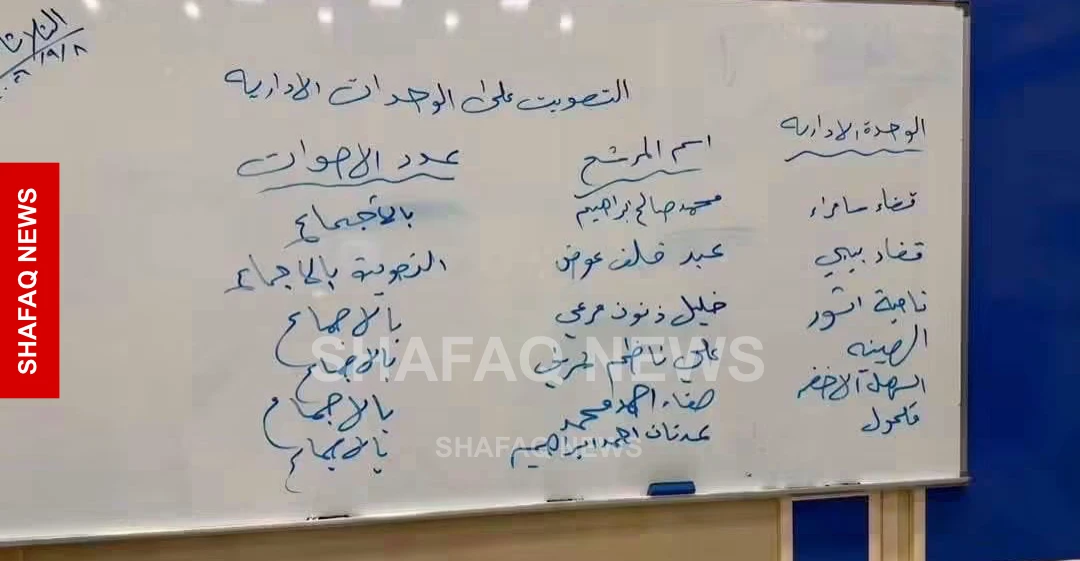 الثلاثاء
١٩/٨
التصويت على الوحدات الادارية
الوحدة الادارية اسم المرشح عدد الاصوات
قضاء سامراء محمد صالح ابراهيم بالأجماع
قضاء بيجي عبد خلف عوض التصويت بالاجماع
ناحية اشور خليل ذنون مرعي بالاجماع
الصينيه علي ناظم بالاجماع
السهل الاخضر صفاء احمد محمد بالاجماع
عدنان احمد ابراهيم بالاجماع
SHAFAQ NEWS
SHAFAQ NEWS
SHAFAQ NEWS